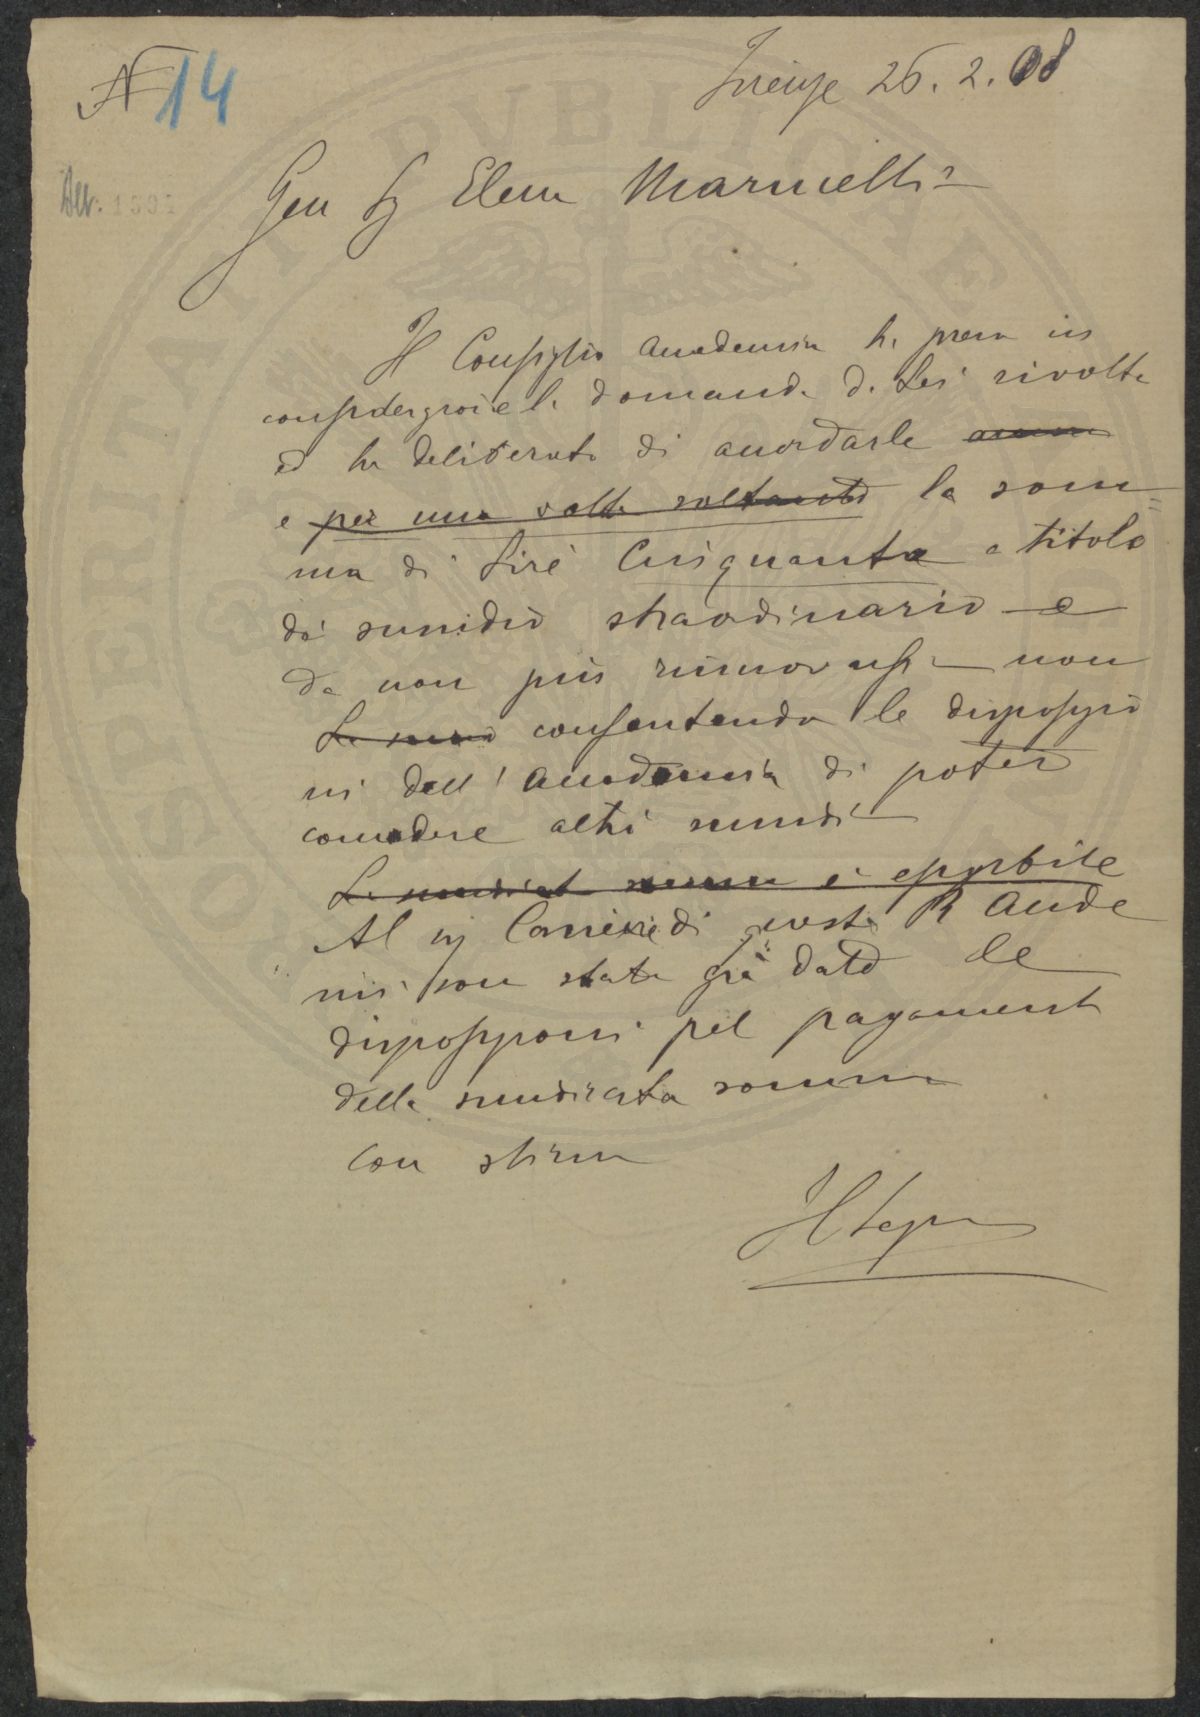 N 14
Firenze 26. 2. 08
Gen Sg Elena Marinelli
Il Consiglio Accademico ha preso in
considerazione la domanda da Lei rivolta
ed ha deliberato di accordarle
e per una volta soltanto la som=
ma di Lire Cinquanta a titolo
di sussidio straordinario e
da non più rinnovarsi non
consentendo le disposizio
ni dell'Accademia di poter
concedere altri sussidi
La suddicata somma è esigibile
Al Sig Cassiere di questa R Accade
mia son state già date le
disposizioni pel pagamento
della suindicata somma
Con stima
Il Segr